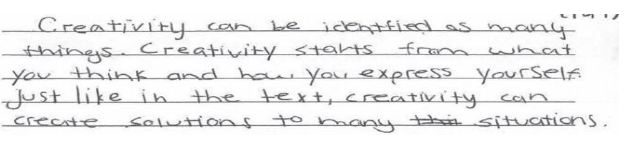 Creativity can be identfied as many
things. Creativity starts from what
you think and how you express yourself.
Just like in the text, creativity can
create solutions to many situations.